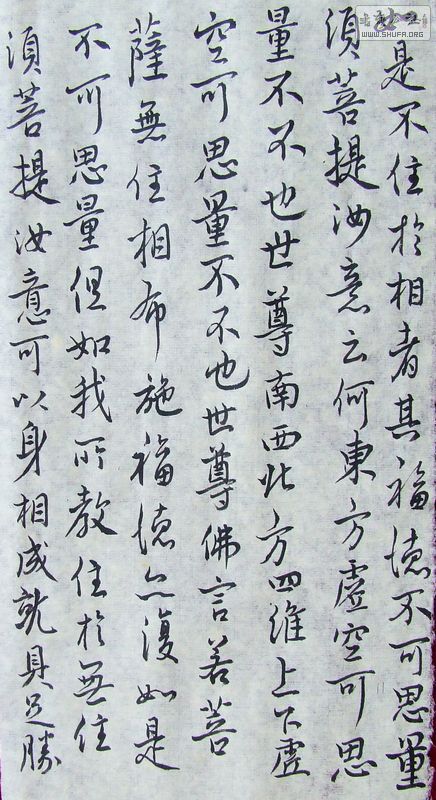 是不住於相者其福德不可思量
須菩提汝意云何東方虛空可思
量不不也世尊南西北方四維上下虛
空可思量不不也世尊佛言若菩
薩無住相布施福德亦復如是
不可思量但如我所教住於無住
須菩提汝意可以身相成就具足勝
WWW.SHUFA.ORG